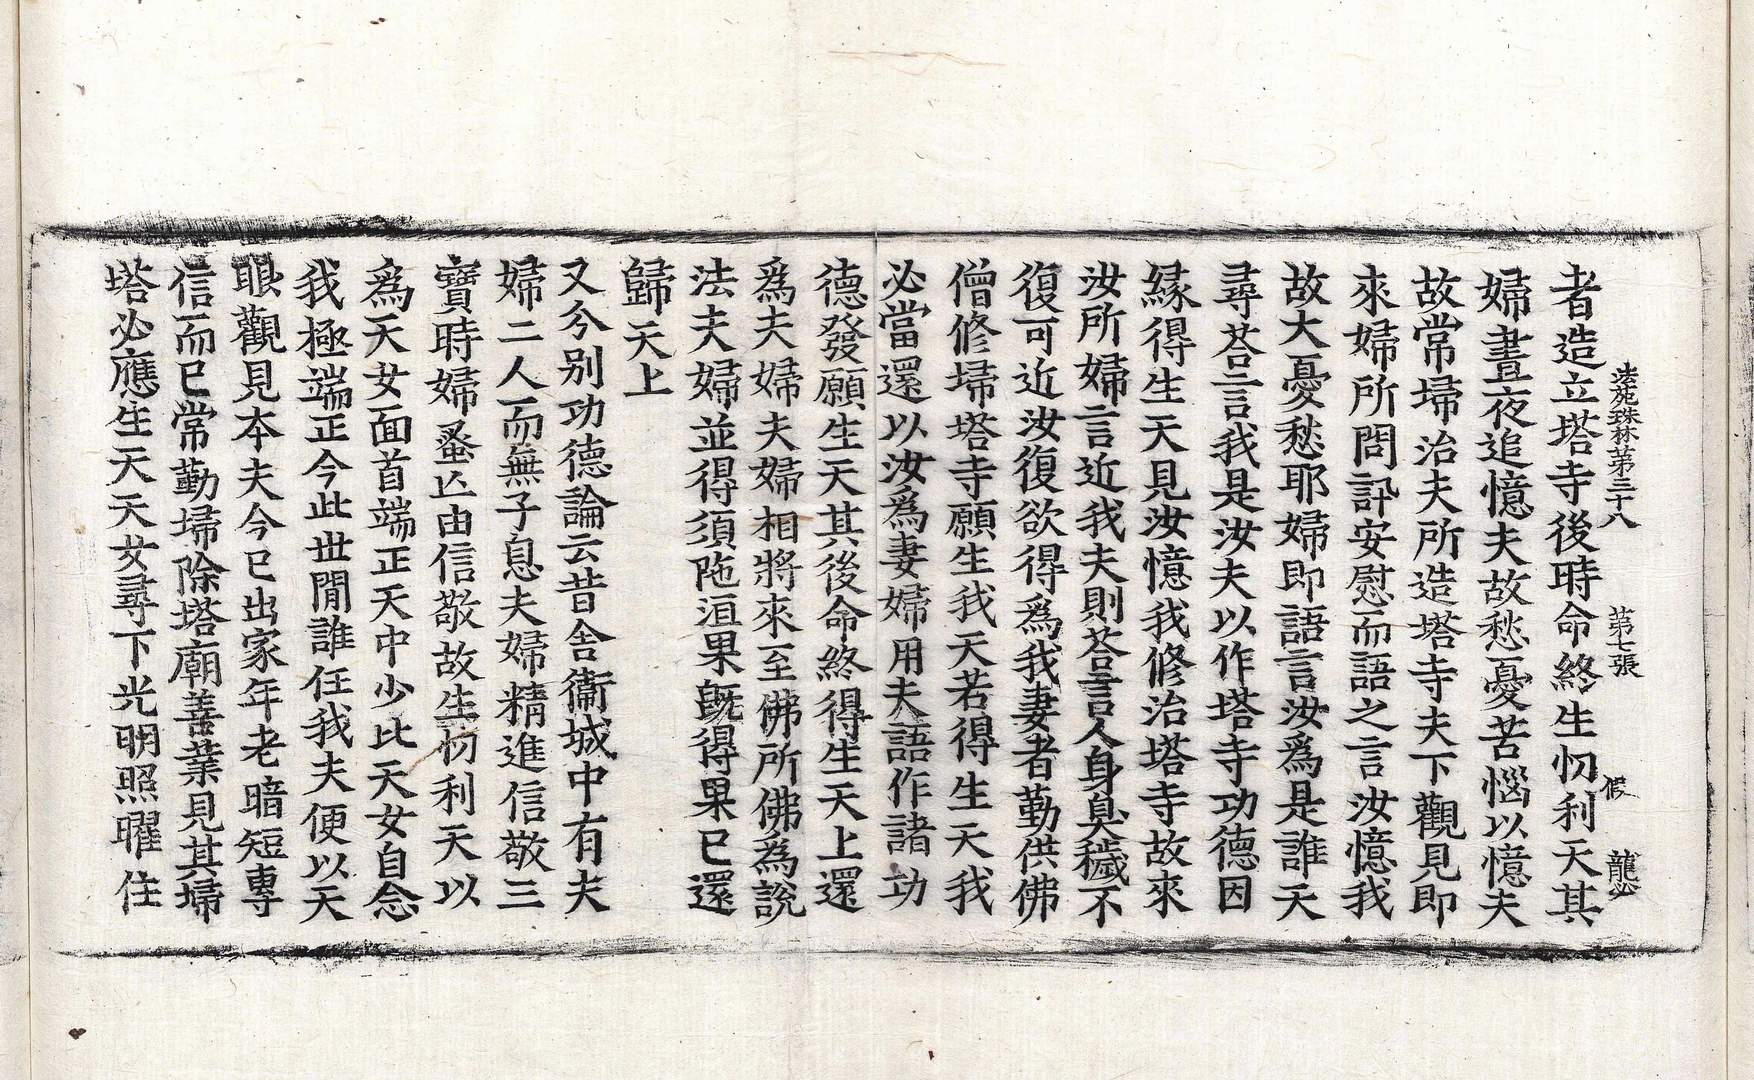 法苑珠林第三十八 第七張 假 龍必
者造立塔寺後時命終生忉利天其
婦晝夜追憶夫故愁憂苦惱以憶夫
故常埽治夫所造塔寺夫下觀見即
來婦所問訊安慰而語之言汝憶我
故大憂愁耶婦即語言汝爲是誰天
尋荅言我是汝夫以作塔寺功德因
緣得生天見汝憶我修治塔寺故來
汝所婦言近我夫則荅言人身臭穢不
復可近汝復欲得爲我妻者勤供佛
僧修埽塔寺願生我天若得生天我
必當還以汝爲妻婦用夫語作諸功
德發願生天其後命終得生天上還
爲夫婦夫婦相將來至佛所佛為說
法夫婦並得須陁洹果旣得果已還
歸天上
又今别功德論云昔舍衞城中有夫
婦二人而無子息夫婦精進信敬三
寶時婦蚤亾由信敬故生忉利天以
爲天女面首端正天中少比天女自念
我極端正今此世閒誰任我夫便以天
眼觀見本夫今已出家年老暗短專
信而已常勤埽除塔廟善業見其埽
塔必應生天天女尋下光明照曜住